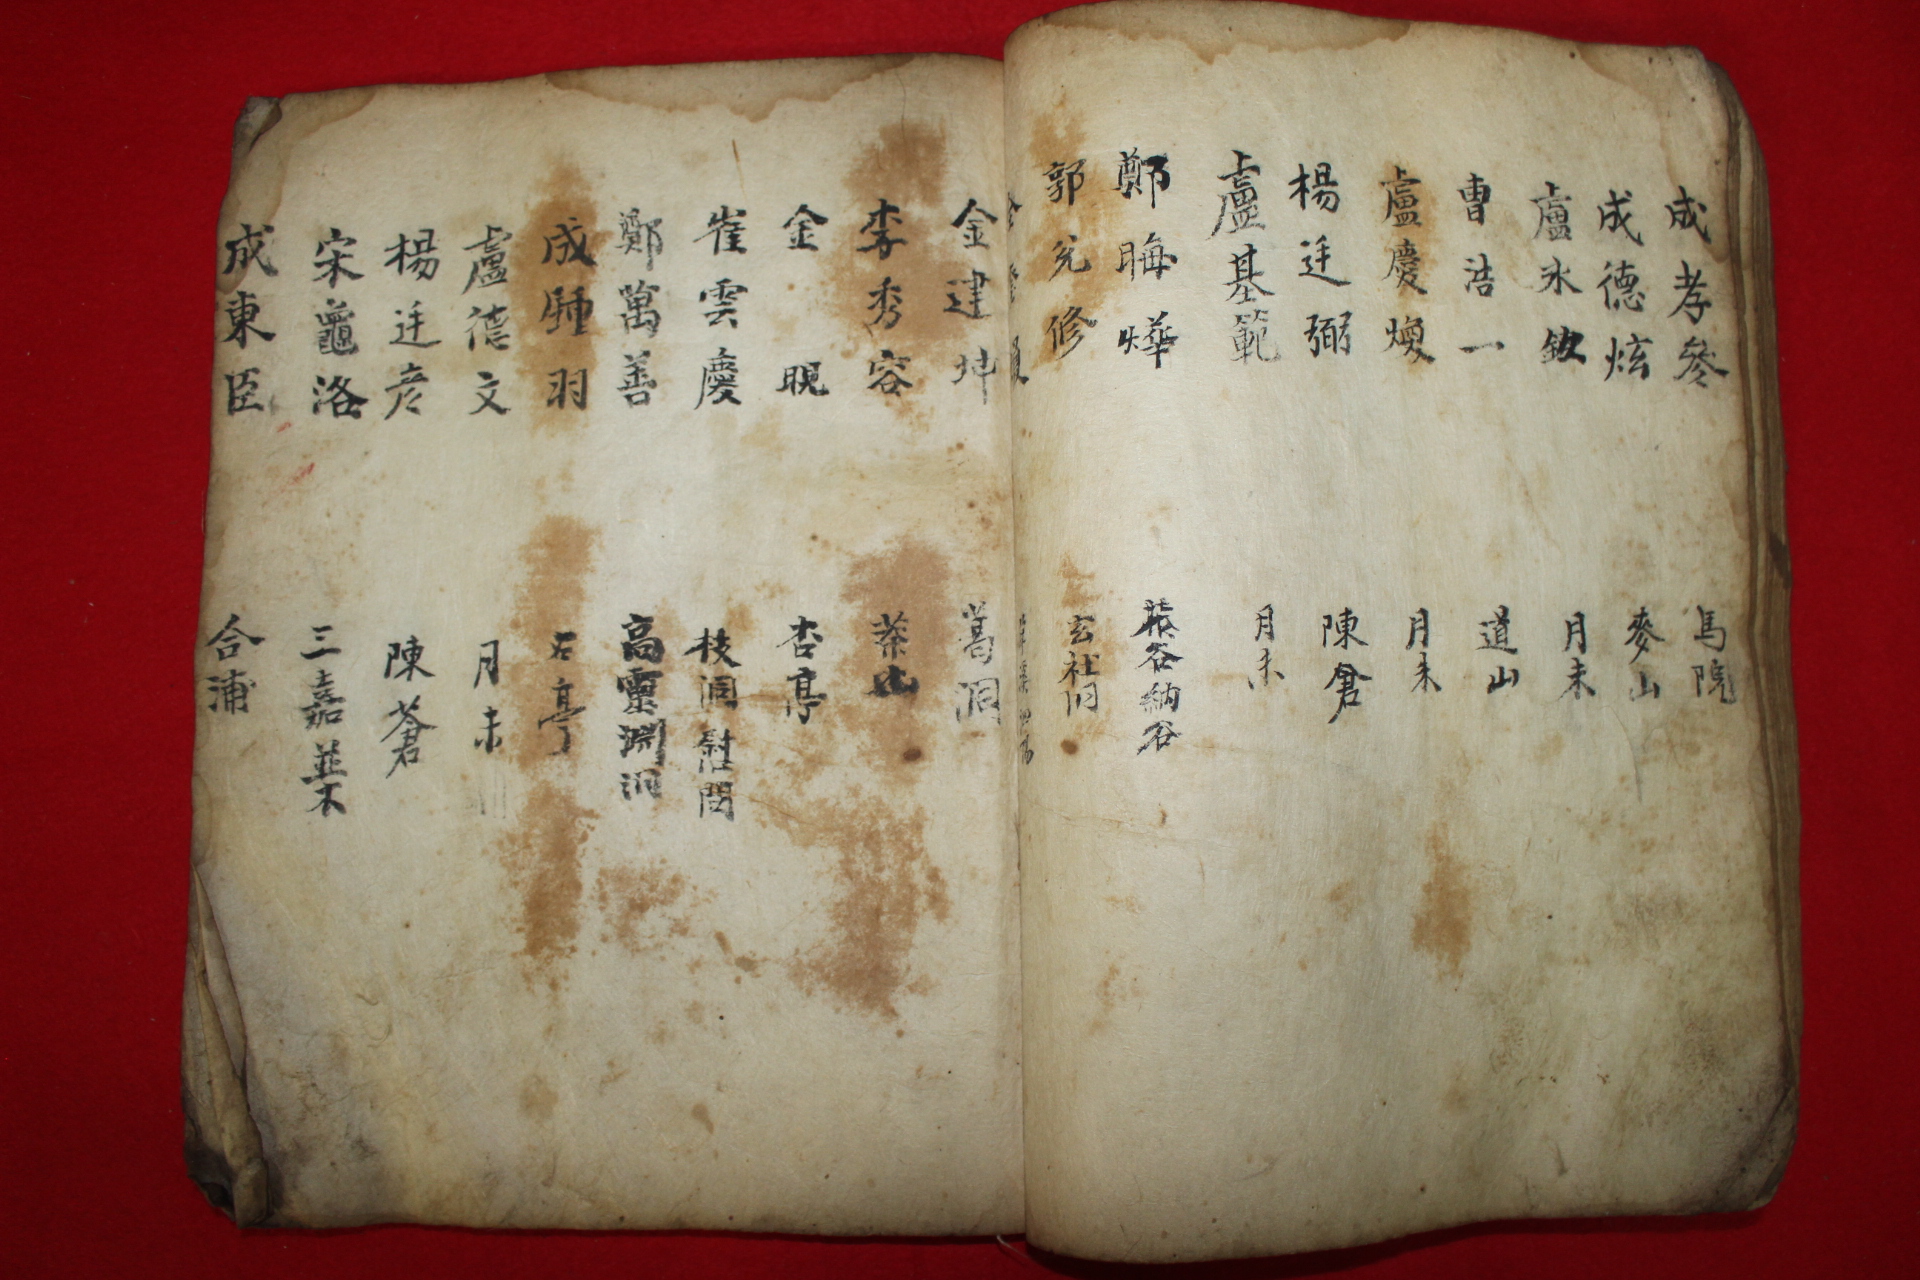 成孝參 馬院
成德炫 麥山
盧永 月未
曺浩一 道山
盧慶煥 月未
楊廷弼 陳倉
盧基範 月未
鄭晦燁 谷納谷
郭兊修 玄社洞
金建坤 葛洞
李秀容 茶山
金晛 杏亭
崔雲慶 枝洞慰問
鄭萬善 高靈淵洞
成鍾羽 石亭
盧德文 月未
楊廷彦 陳蒼
宋龜洛 三嘉並木
成東臣 合浦